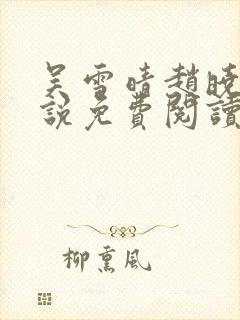 吴雪晴趙晓
說免費閱讀
柳熏风